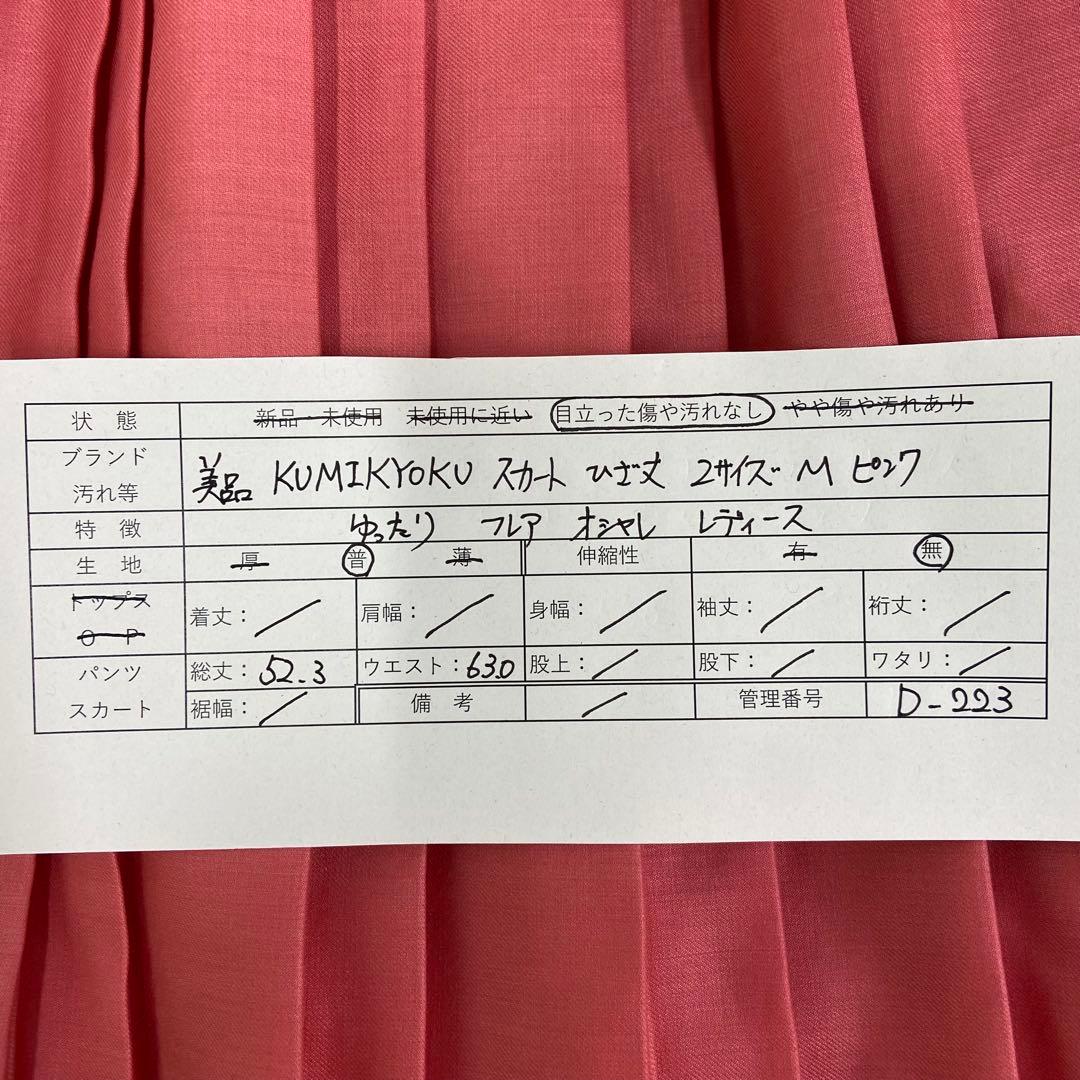 状態 新品・未使用 未使用に近い 目立った傷や汚れなし やや傷や汚れあり
ブランド 汚れ等 美品 KUMIKYOKU スカート ひざ丈 2サイズ M ピンク
特徴 ゆったり フレア オシャレ レディース
生地 厚 普 薄 伸縮性 有 無
トップス OP 着丈： / 肩幅： / 身幅： / 袖丈： / 裄丈： /
パンツ 総丈：52.3 ウエスト：63.0 股上： / 股下： / ワタリ： /
スカート 裾幅： / 備考 / 管理番号 D-223